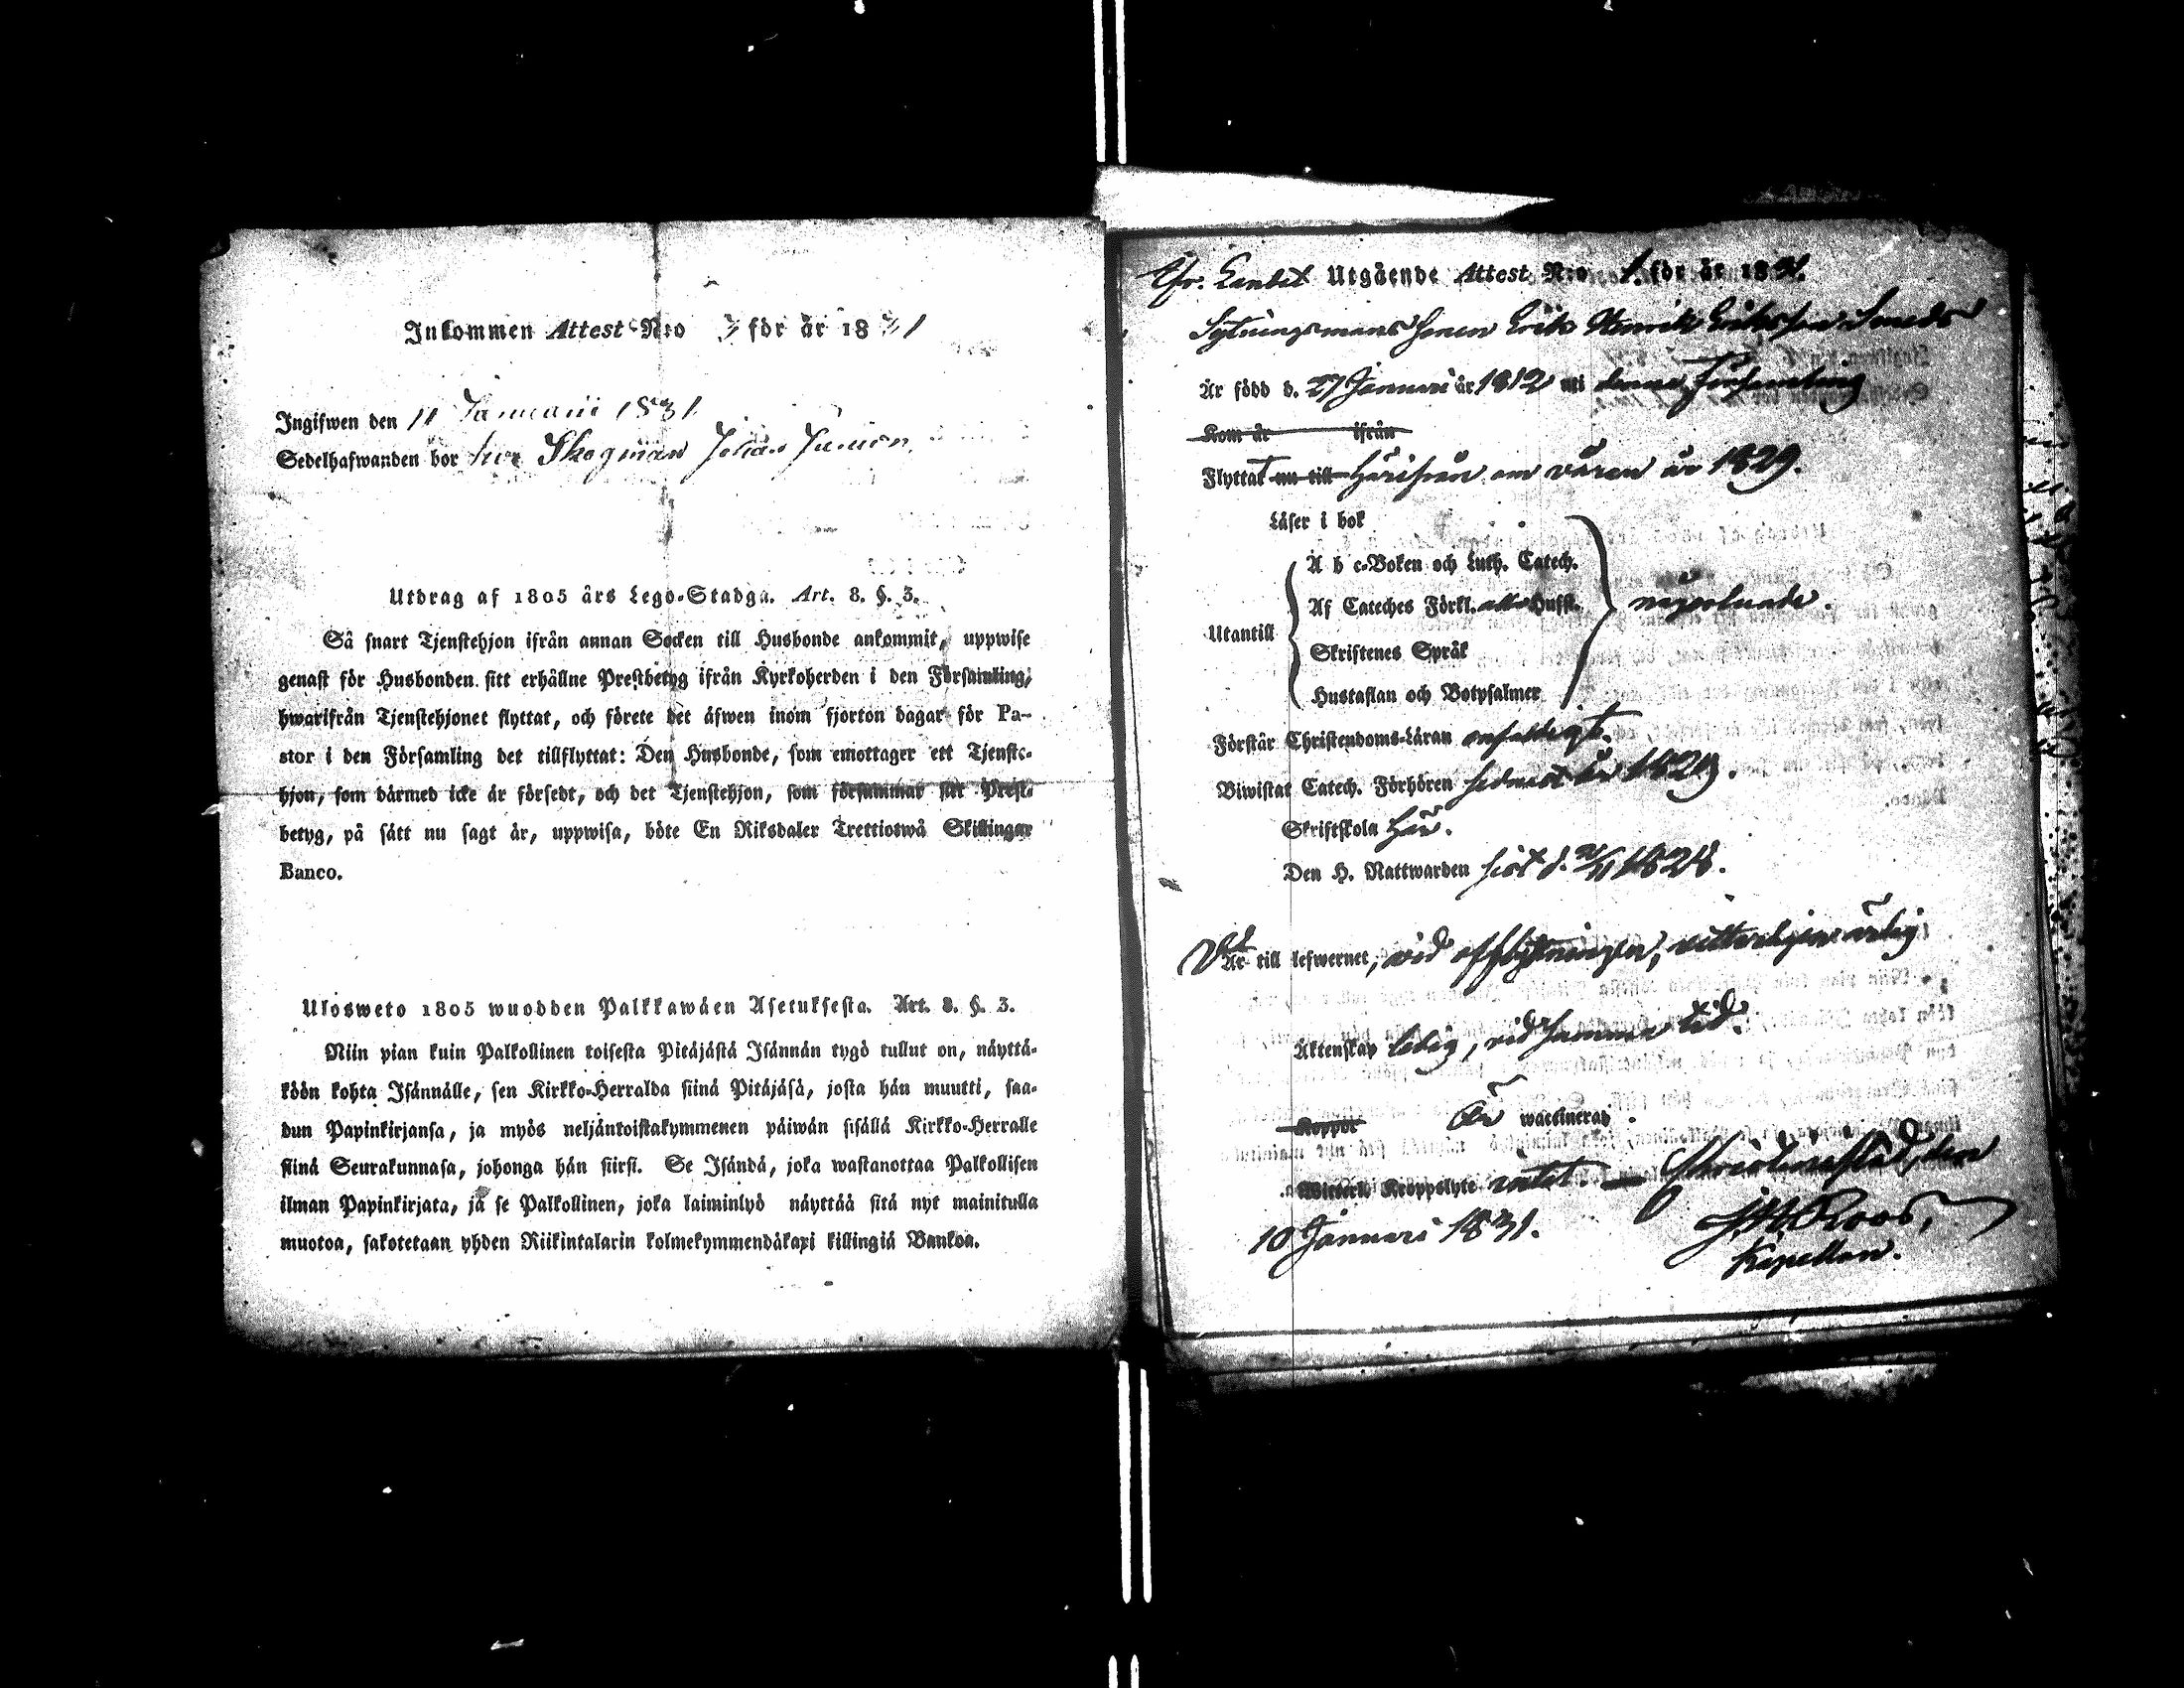 Inkommen Attest N:o 3 för år 1831
Ingifwen den 11 Januarii 1831
Sedelhafwanden bor hos Skogman Johan
Utdrag af 1805 års Lego-Stadga. Art. 8. §. 3.
Så snart Tjenstehjon ifrån annan Socken till Husbonde ankommit, uppwise
genast för Husbonden sitt erhållne Prestbetyg ifrån Kyrkoherden i den Församling,
hwarifrån Tjenstehjonet flyttat, och förete det äfwen inom fjorton dagar för Pa-
stor i den Församling det tillflyttat: Den Husbonde, som emottager ett Tjenste-
hjon, som därmed icke är försedt, och det Tjenstehjon, som försummar sitt Prest-
betyg, på sätt nu sagt är, uppwisa, böte En Riksdaler Trettiotwå Skillingar
Banco.
Ulosweto 1805 wuodden Palkkawäen Asetuksesta. Art. 8. §. 3.
Niin pian kuin Palkollinen toisesta Pitäjästä Isännän tygö tullut on, näyttä-
köön kohta Isännälle, sen Kirkko-Herralda siinä Pitäjäsä, josta hän muutti, saa-
dun Papinkirjansa, ja myös neljäntoistakymmenen päiwän sisällä Kirkko-Herralle
siinä Seurakunnasa, johonga hän siirsi. Se Isändä, joka wastanottaa Palkollisen
ilman Papinkirjata, ja se Palkollinen, joka laiminlyö näyttää sitä nyt mainitulla
muotoa, sakotetaan yhden Riikintalarin kolmekymmendäkaxi killingiä Bankoa.
Utgående Attest N:o 1. för år 1831.
Sytningsmans Sonen Erik Henrik Eriksson Smeds
Är född d. 27 Januari år 1812 uti denna Församling
Kom år ifrån
Flyttat nu till härifrån om våren år 1829.
Läser i bok
A b c-Boken och Luth. Catech.
Af Cateches Förkl. Hufst.
Utantill
någorlunda.
Skriftenes Språk
Hustaflan och Botpsalmer
Förstår Christendoms-Läran enfaldigt.
Biwistat Catech. Förhören sednast år 1829.
Skriftskola här.
Den H. Nattwarden sist d. 1828.
Är till lefwernet, vid afflyttningen, vitterligen ärlig
Äktenskap ledig, vid samma tid.
Koppor Är waccinerad.
Witterl. Kroppslyte intet. Christinestad, den
10 Januari 1831. Roos,
Kapellan.